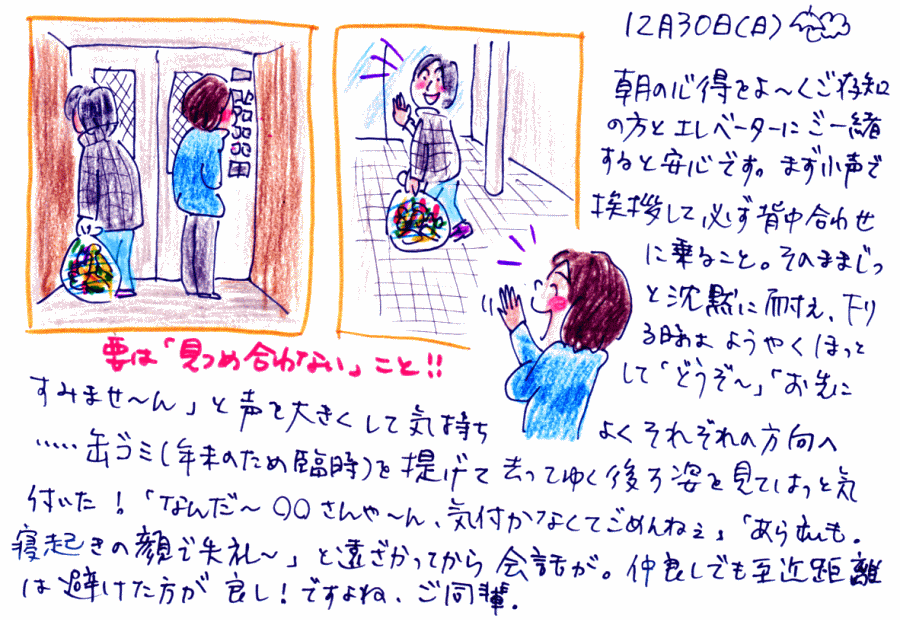 12月30日(日)
朝の心得をよ～くご存知
の方とエレベーターにご一緒
すると安心です。まず小声で
挨拶して必ず背中合わせ
に乗ること。そのままじっ
と沈黙に耐え、下り
る時はようやくほっと
して「どうぞ～」「お先に
すみませ～ん」と声を大きくして気持ちよくそれぞれの方向へ
‥‥‥缶ゴミ(年末のため臨時)を提げて去ってゆく後ろ姿を見てはっと気
付いた!「なんだ～〇〇さんや～ん、気付かなくてごめんねぇ」「あらぁ私も。
寝起きの顔で失礼～」と遠ざかってから会話が。仲良しでも至近距離
は避けた方が良し!ですよね、ご同輩.
要は「見つめ合わない」こと!!